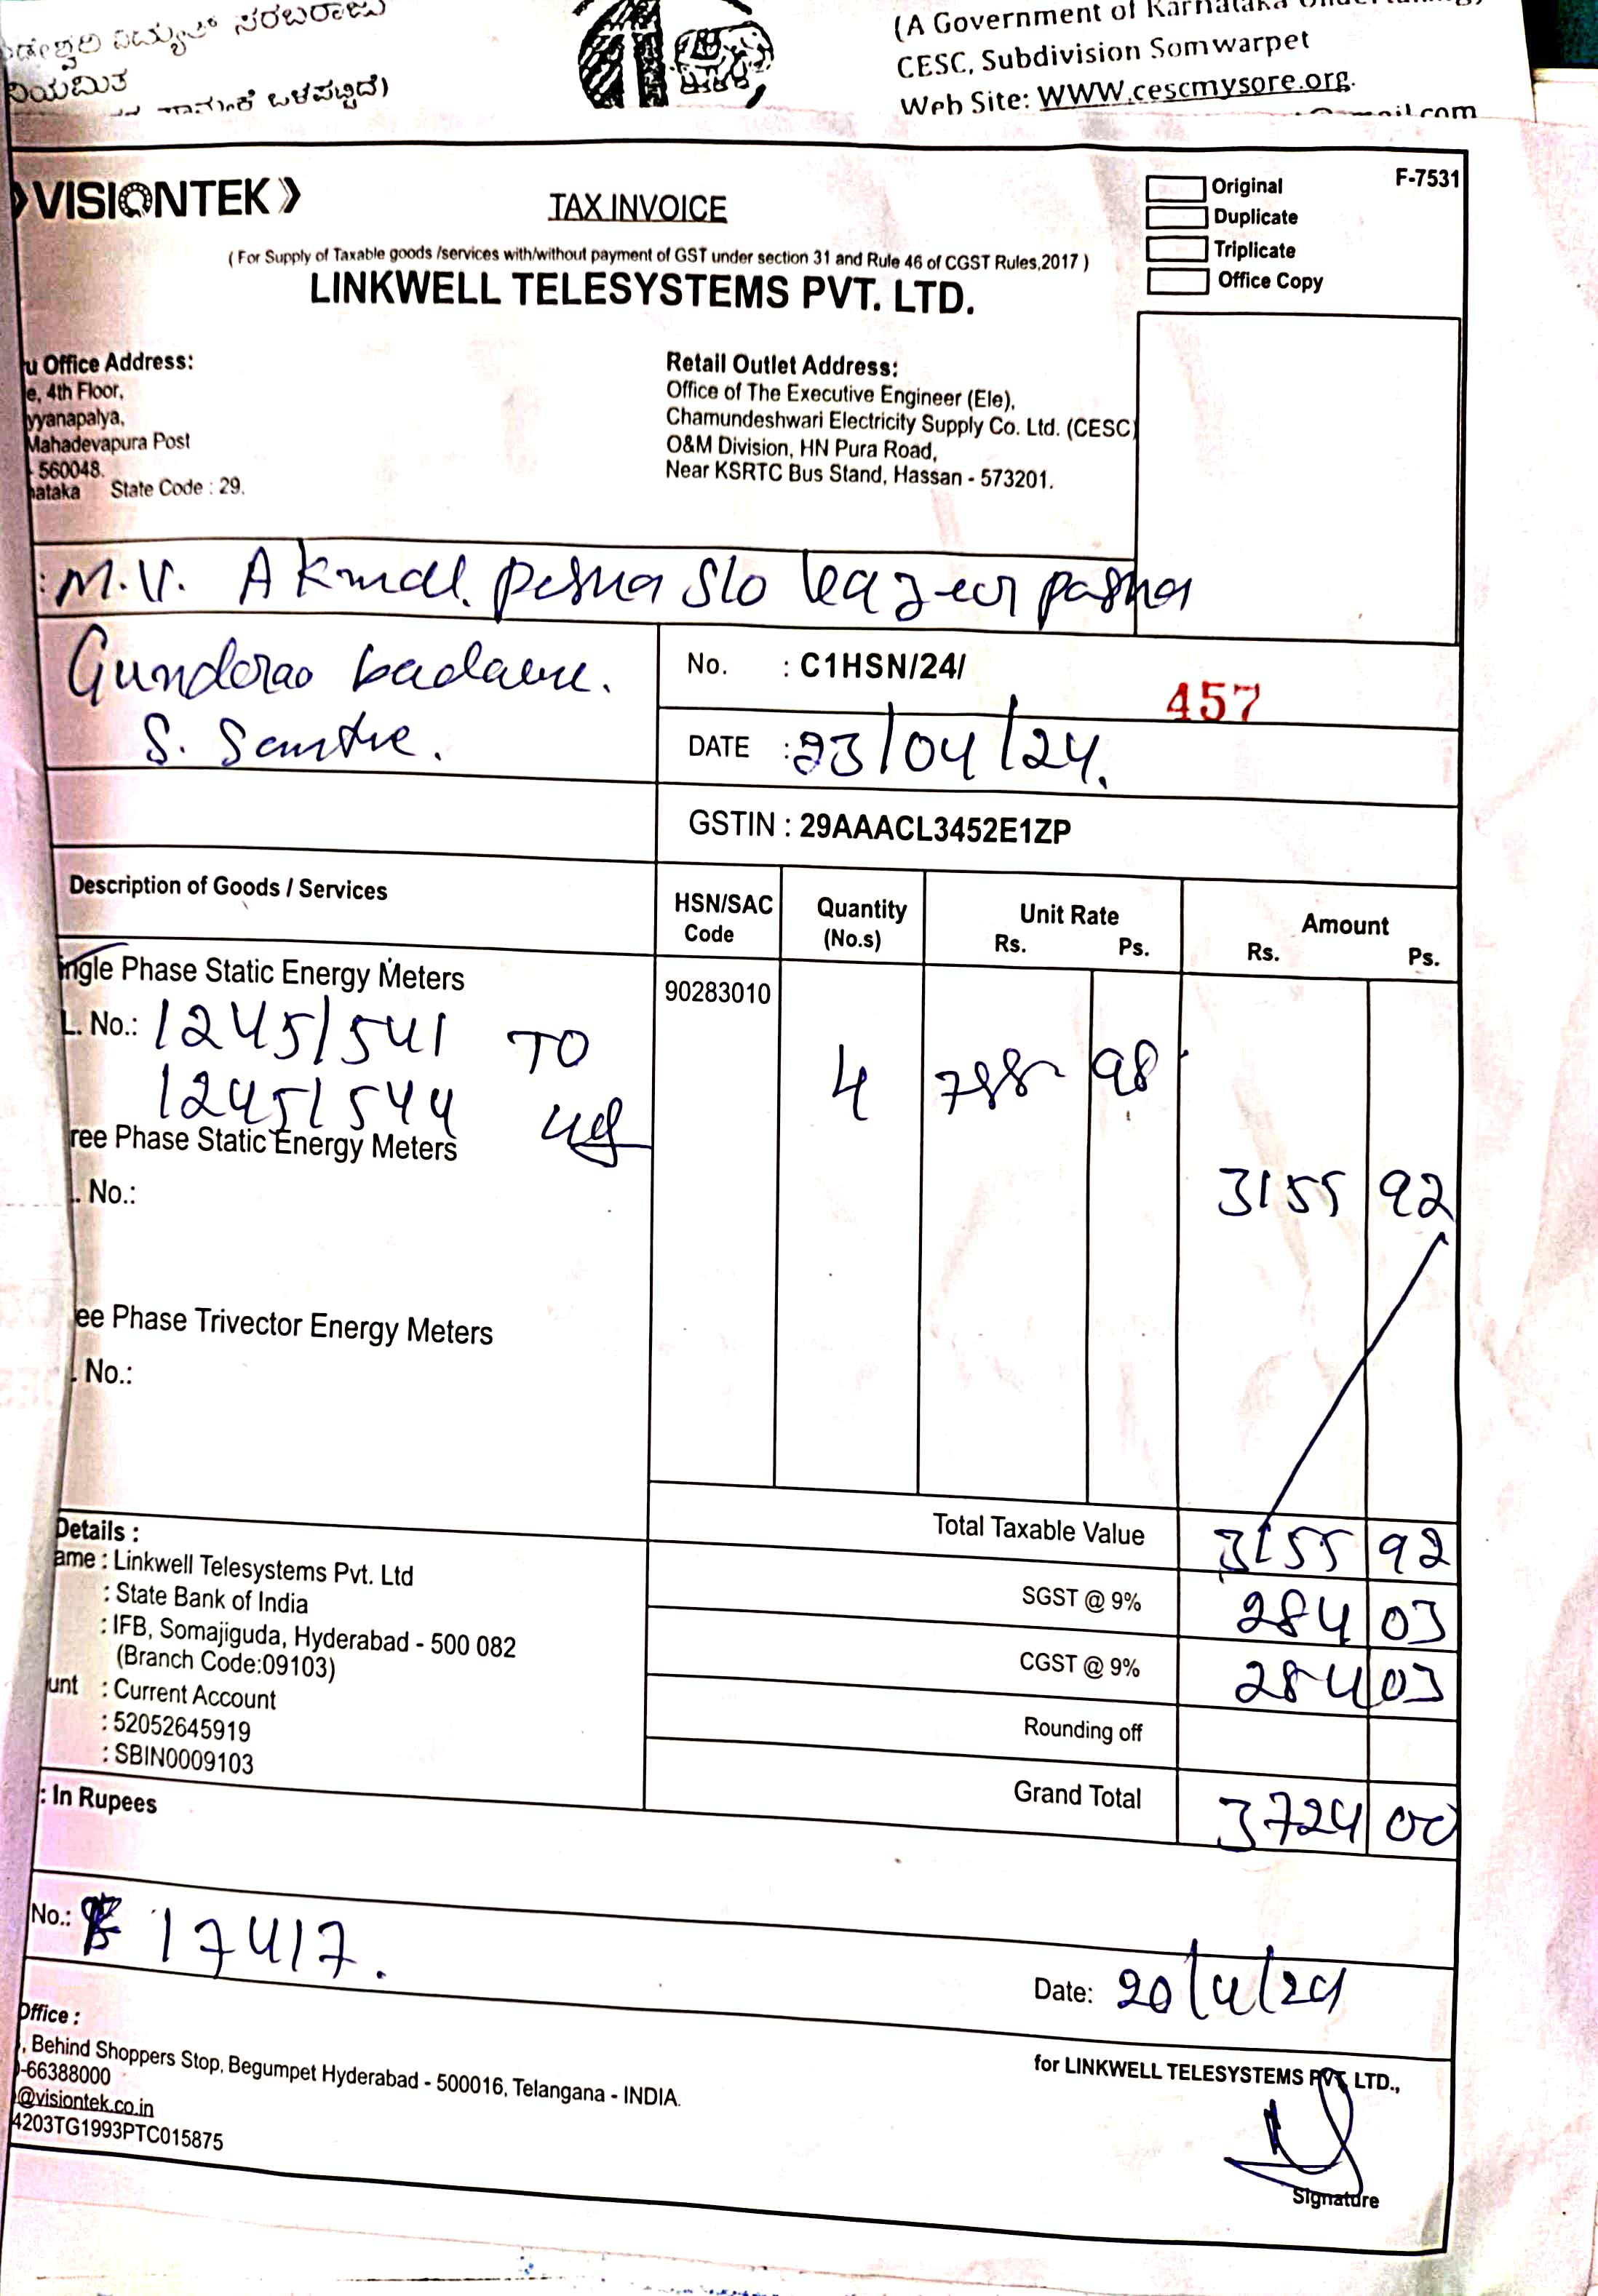 ವಿದ್ಯುತ್ ಸರಬರಾಜು
ನಿಯಮಿತ
ಒಳಪಟ್ಟಿದೆ)
(A Government of Karnataka
CESC, Subdivision Somwarpet
Web Site: WWW.cescmysore.org.
VISIONTEK
TAX INVOICE
Original
Duplicate
Triplicate
Office Copy
F-7531
( For Supply of Taxable goods /services with/without payment of GST under section 31 and Rule 46 of CGST Rules,2017 )
LINKWELL TELESYSTEMS PVT. LTD.
u Office Address:
e, 4th Floor,
yyanapalya,
Mahadevapura Post
- 560048.
nataka State Code : 29.
Retail Outlet Address:
Office of The Executive Engineer (Ele),
Chamundeshwari Electricity Supply Co. Ltd. (CESC)
O&M Division, HN Pura Road,
Near KSRTC Bus Stand, Hassan - 573201.
: M.V. Akmal. pasha S/o pasha
Gunderao badavne.
S. Santhe.
No. : C1HSN/24/ 457
DATE : 23/04/24.
GSTIN : 29AAACL3452E1ZP
Description of Goods / Services
HSN/SAC Code
Quantity (No.s)
Unit Rate Rs. Ps.
Amount Rs. Ps.
ingle Phase Static Energy Meters 90283010
L. No.: 12451541 TO
12451544
4 788 98
ree Phase Static Energy Meters
. No.:
3155 92
ee Phase Trivector Energy Meters
. No.:
Total Taxable Value 3155 92
SGST @ 9% 284 03
CGST @ 9% 284 03
Rounding off
Grand Total 3724 00
Details :
ame : Linkwell Telesystems Pvt. Ltd
: State Bank of India
: IFB, Somajiguda, Hyderabad - 500 082
(Branch Code:09103)
unt : Current Account
: 52052645919
: SBIN0009103
: In Rupees
No.: 17417.
Date: 20/4/24
Office :
, Behind Shoppers Stop, Begumpet Hyderabad - 500016, Telangana - INDIA.
-66388000
@visiontek.co.in
4203TG1993PTC015875
for LINKWELL TELESYSTEMS PVT. LTD.,
Signature